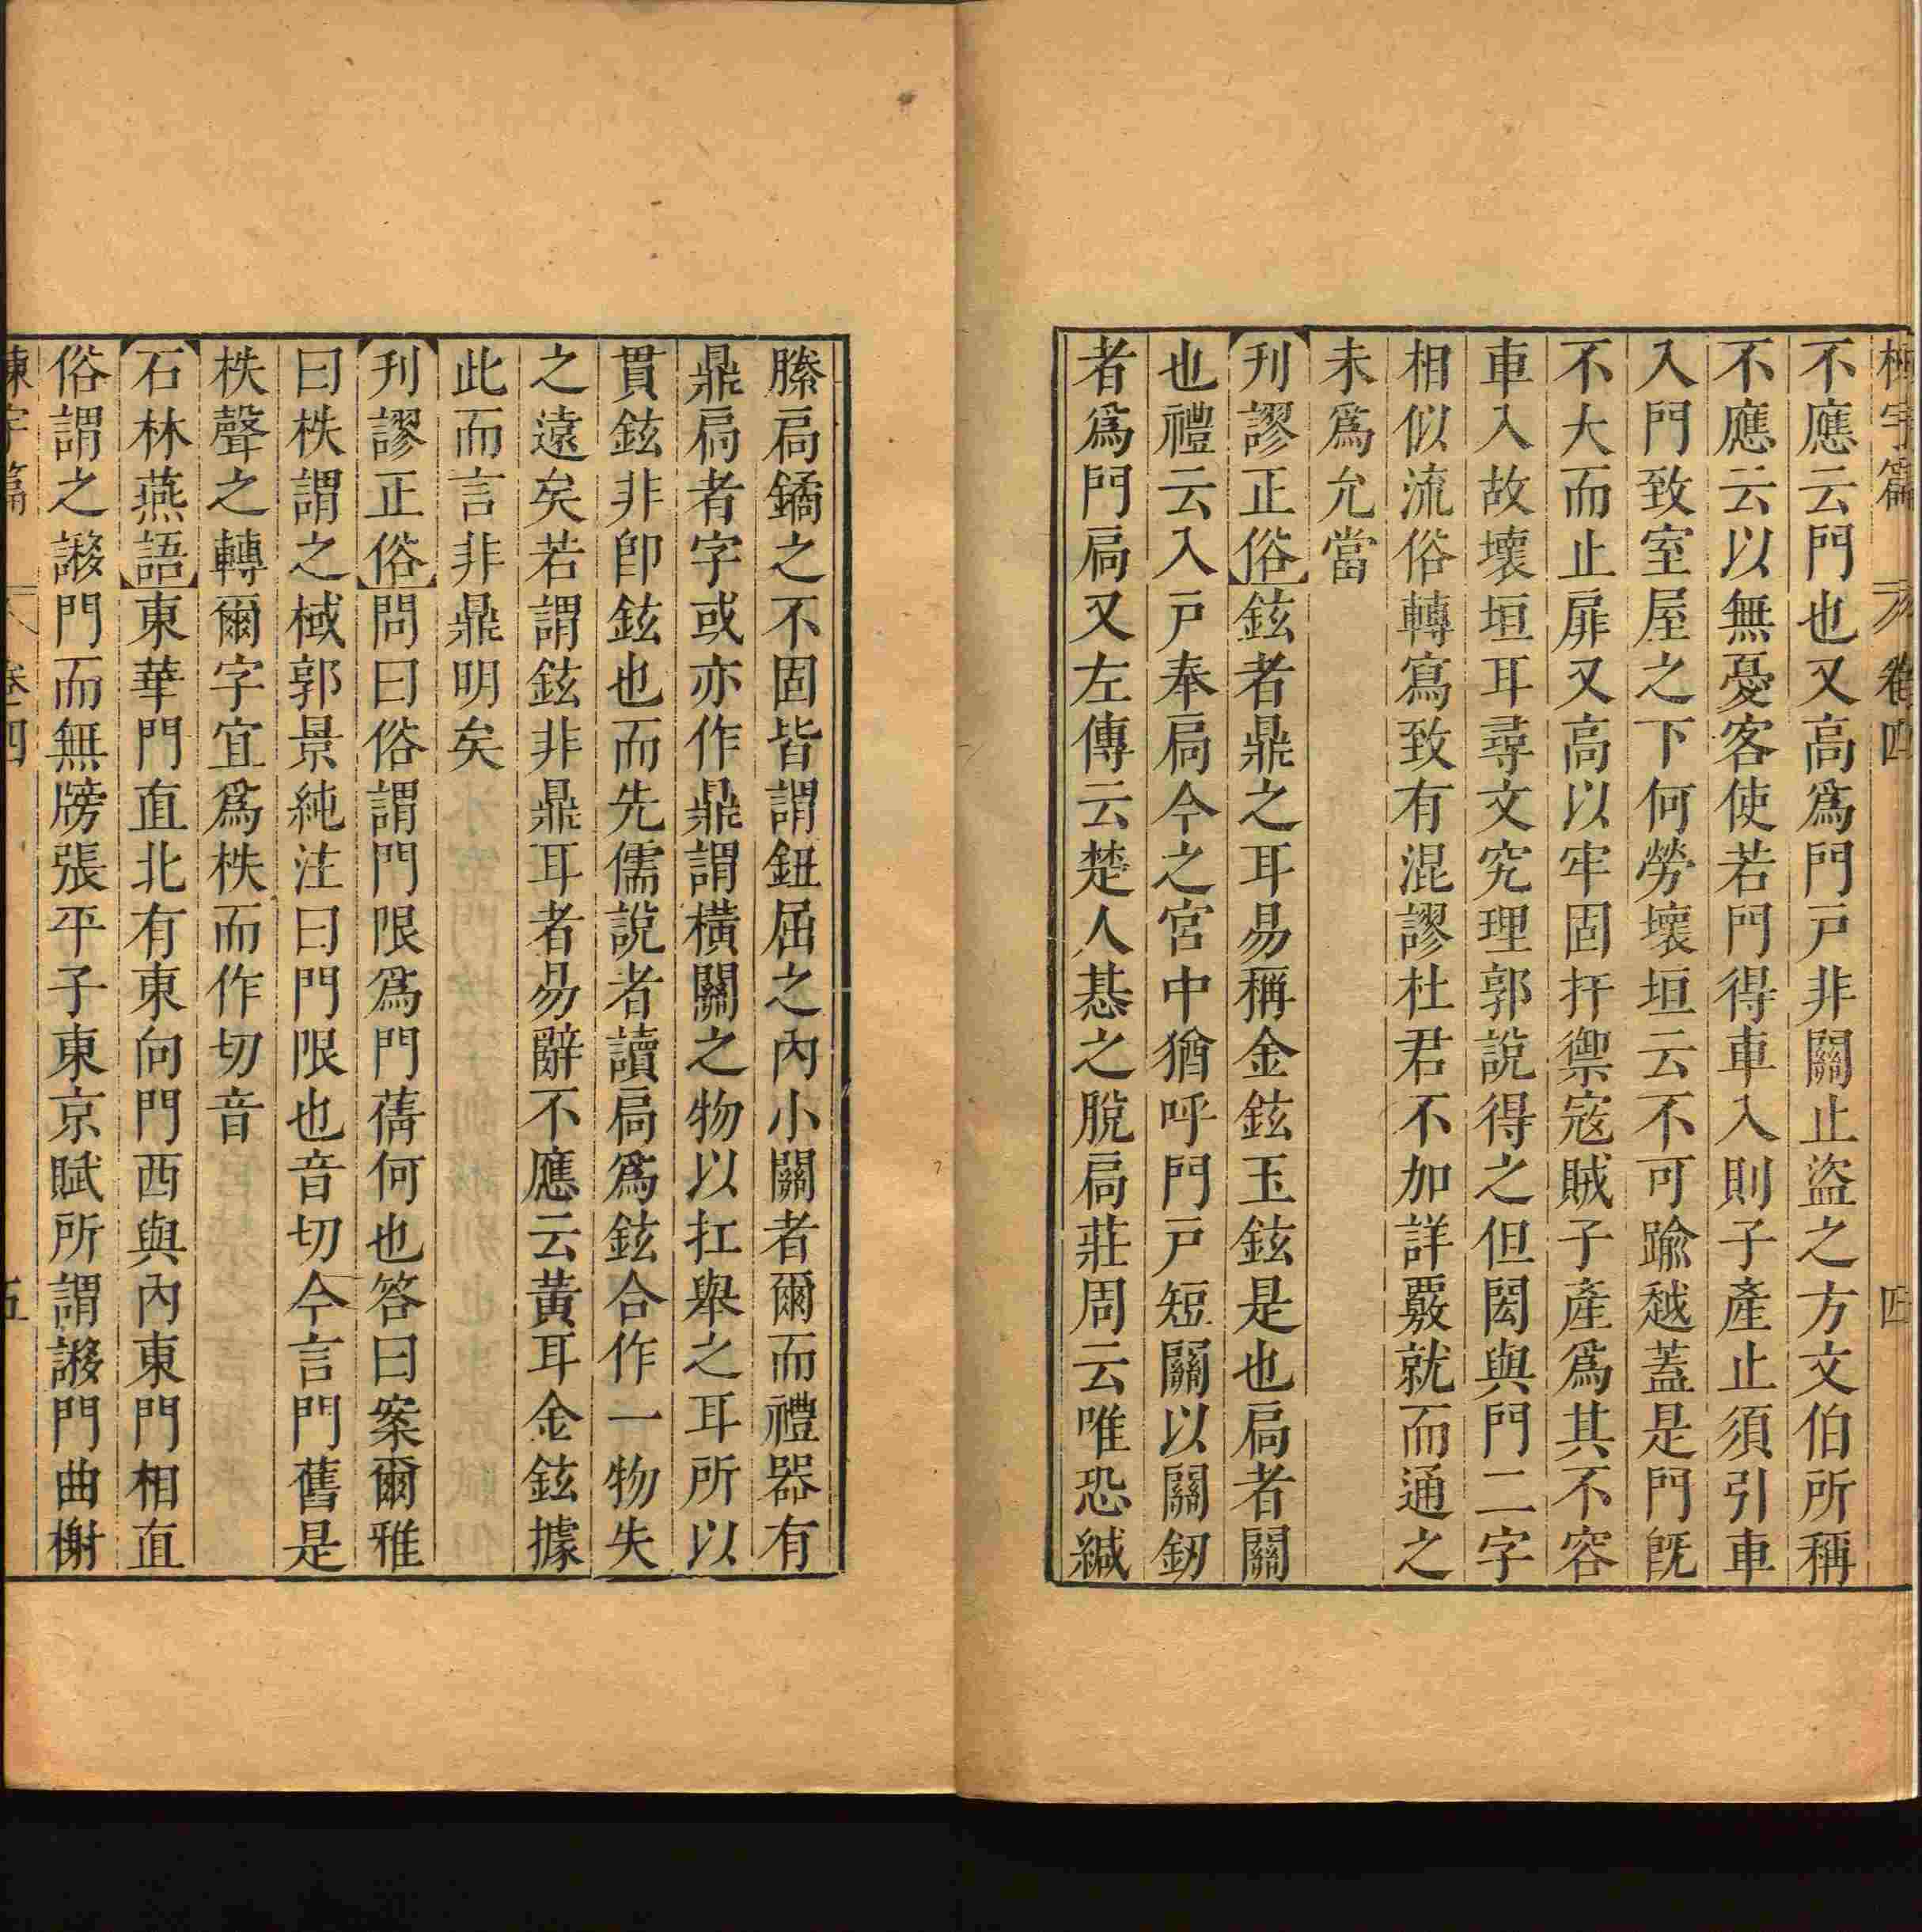 棟宇篇 卷四 四
不應云門也又高爲門戸非關止盜之方文伯所稱
不應云以無憂客使若門得車入則子產止須引車
入門致室屋之下何勞壞垣云不可踰越蓋是門旣
不大而止扉又高以牢固扞禦寇賊子產爲其不容
車入故壞垣耳尋文究理郭說得之但閎與門二字
相似流俗轉寫致有混謬杜君不加詳覈就而通之
未爲允當
刊謬正俗鉉者鼎之耳易稱金鉉玉鉉是也扃者關
也禮云入戸奉扃今之宮中猶呼門戸短關以關釰
者爲門扃又左傳云楚人惎之脫扃莊周云唯恐緘
縢扃鐍之不固皆謂鈕屈之內小關者爾而禮器有
鼎扃者字或亦作鼏謂橫關之物以扛舉之耳所以
貫鉉非卽鉉也而先儒說者讀扃爲鉉合作一物失
之遠矣若謂鉉非鼎耳者易辭不應云黃耳金鉉據
此而言非鼎明矣
刊謬正俗問曰俗謂門限爲門蒨何也答曰案爾雅
曰柣謂之棫郭景純注曰門限也音切今言門舊是
柣聲之轉爾字宜爲柣而作切音
石林燕語東華門直北有東向門西與內東門相直
俗謂之謻門而無牓張平子東京賦所謂謻門曲榭
棟宇篇 卷四 五